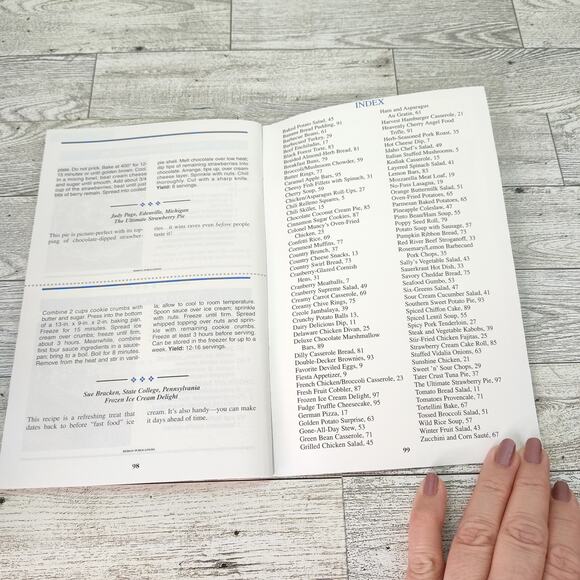 pake. Do not prick. Bake at 400° for 12-
15 minutes or until golden brown. Cool.
In a mixing bowl, beat cream cheese
and sugar until smooth. Add about 3/4
cup of the strawberries; beat until just
bits of berry remain. Spread into cooled
pie shell. Melt chocolate over low heat;
dip tips of remaining strawberries into
chocolate. Arrange, tips up, over cream
cheese layer. Sprinkle with nuts. Chill
thoroughly. Cut with a sharp knife.
Yield: 8 servings.
Judy Page, Edenville, Michigan
The Ultimate Strawberry Pie
This pie is picture-perfect with its top-
ping of chocolate-dipped strawber-
ries—it wins raves even before people
taste it!
REIMAN PUBLICATIONS
Combine 2 cups cookie crumbs with
butter and sugar. Press into the bottom
of a 13-in. x 9-in. x 2-in. baking pan.
Freeze for 15 minutes. Spread ice
cream over crumbs; freeze until firm,
about 3 hours. Meanwhile, combine
first four sauce ingredients in a sauce-
pan; bring to a boil. Boil for 8 minutes.
Remove from the heat and stir in vanil-
la; allow to cool to room temperature.
Spoon sauce over ice cream; sprinkle
with nuts. Freeze until firm. Spread
whipped topping over nuts and sprin-
kle with remaining cookie crumbs.
Freeze at least 3 hours before serving.
Can be stored in the freezer for up to a
week. Yield: 12-16 servings.
Sue Bracken, State College, Pennsylvania
Frozen Ice Cream Delight
This recipe is a refreshing treat that
dates back to before "fast food" ice
cream. It's also handy—you can make
it days ahead of time.
REIMAN PUBLICATIONS
98
INDEX
Baked Potato Salad, 45
Banana Bread Pudding, 91
Barbecue Beans, 61
Barbecued Turkey, 29
Beef Enchiladas, 17
Black Forest Torte, 83
Braided Almond Herb Bread, 81
Breakfast Buns, 79
Broccoli/Mushroom Chowder, 59
Butter Rings, 77
Caramel Apple Bars, 95
Cheesy Fish Fillets with Spinach, 31
Cherry Soup, 59
Chicken/Asparagus Roll-Ups, 27
Chili Relleno Squares, 5
Chili Skillet, 15
Chocolate Coconut Cream Pie, 85
Cinnamon Sugar Cookies, 87
Colonel Muncy's Oven-Fried
Chicken, 23
Confetti Rice, 69
Cornmeal Muffins, 77
Country Brunch, 37
Country Cheese Snacks, 13
Country Swirl Bread, 73
Cranberry-Glazed Cornish
Hens, 31
Cranberry Meatballs, 7
Cranberry Supreme Salad, 49
Creamy Carrot Casserole, 69
Creamy Chive Rings, 75
Creole Jambalaya, 39
Crunchy Potato Balls, 13
Dairy Delicious Dip, 11
Delaware Chicken Divan, 25
Deluxe Chocolate Marshmallow
Bars, 89
Dilly Casserole Bread, 81
Double-Decker Brownies, 93
Favorite Deviled Eggs, 9
Fiesta Appetizer, 9
French Chicken/Broccoli Casserole, 23
Fresh Fruit Cobbler, 87
Frozen Ice Cream Delight, 97
Fudge Truffle Cheesecake, 95
German Pizza, 17
Golden Potato Surprise, 63
Gone-All-Day Stew, 53
Green Bean Casserole, 71
Grilled Chicken Salad, 45
Ham and Asparagus
Au Gratin, 63
Harvest Hamburger Casserole, 21
Heavenly Cherry Angel Food
Trifle, 91
Herb-Seasoned Pork Roast, 35
Hot Cheese Dip, 7
Idaho Chef's Salad, 49
Italian Stuffed Mushrooms, 5
Kodiak Casserole, 15
Layered Spinach Salad, 41
Lemon Bars, 83
Mozzarella Meat Loaf, 19
No-Fuss Lasagna, 19
Orange Buttermilk Salad, 51
Oven-Fried Potatoes, 65
Parmesan Baked Potatoes, 65
Pineapple Coleslaw, 47
Pinto Bean/Ham Soup, 55
Poppy Seed Roll, 79
Potato-Sausage Soup, 57
Pumpkin Ribbon Bread, 75
Red River Beef Stroganoff, 33
Rosemary/Lemon Barbecued
Pork Chops, 35
Sally's Vegetable Salad, 43
Sauerkraut Hot Dish, 33
Savory Cheddar Bread, 75
Seafood Gumbo, 53
Six-Greens Salad, 47
Sour Cream Cucumber Salad, 41
Southern Sweet Potato Pie, 93
Spiced Chiffon Cake, 89
Spiced Lentil Soup, 55
Spicy Pork Tenderloin, 27
Steak and Vegetable Kabobs, 39
Stir-Fried Chicken Fajitas, 25
Strawberry Cream Cake Roll, 85
Stuffed Vidalia Onions, 63
Sunshine Chicken, 21
Sweet 'n' Sour Chops, 29
Tater Crust Tuna Pie, 37
The Ultimate Strawberry Pie, 97
Tomato Bread Salad, 11
Tomatoes Provencale, 71
Tortellini Bake, 67
Tossed Broccoli Salad, 51
Wild Rice Soup, 57
Winter Fruit Salad, 43
Zucchini and Corn Sauté, 67
99